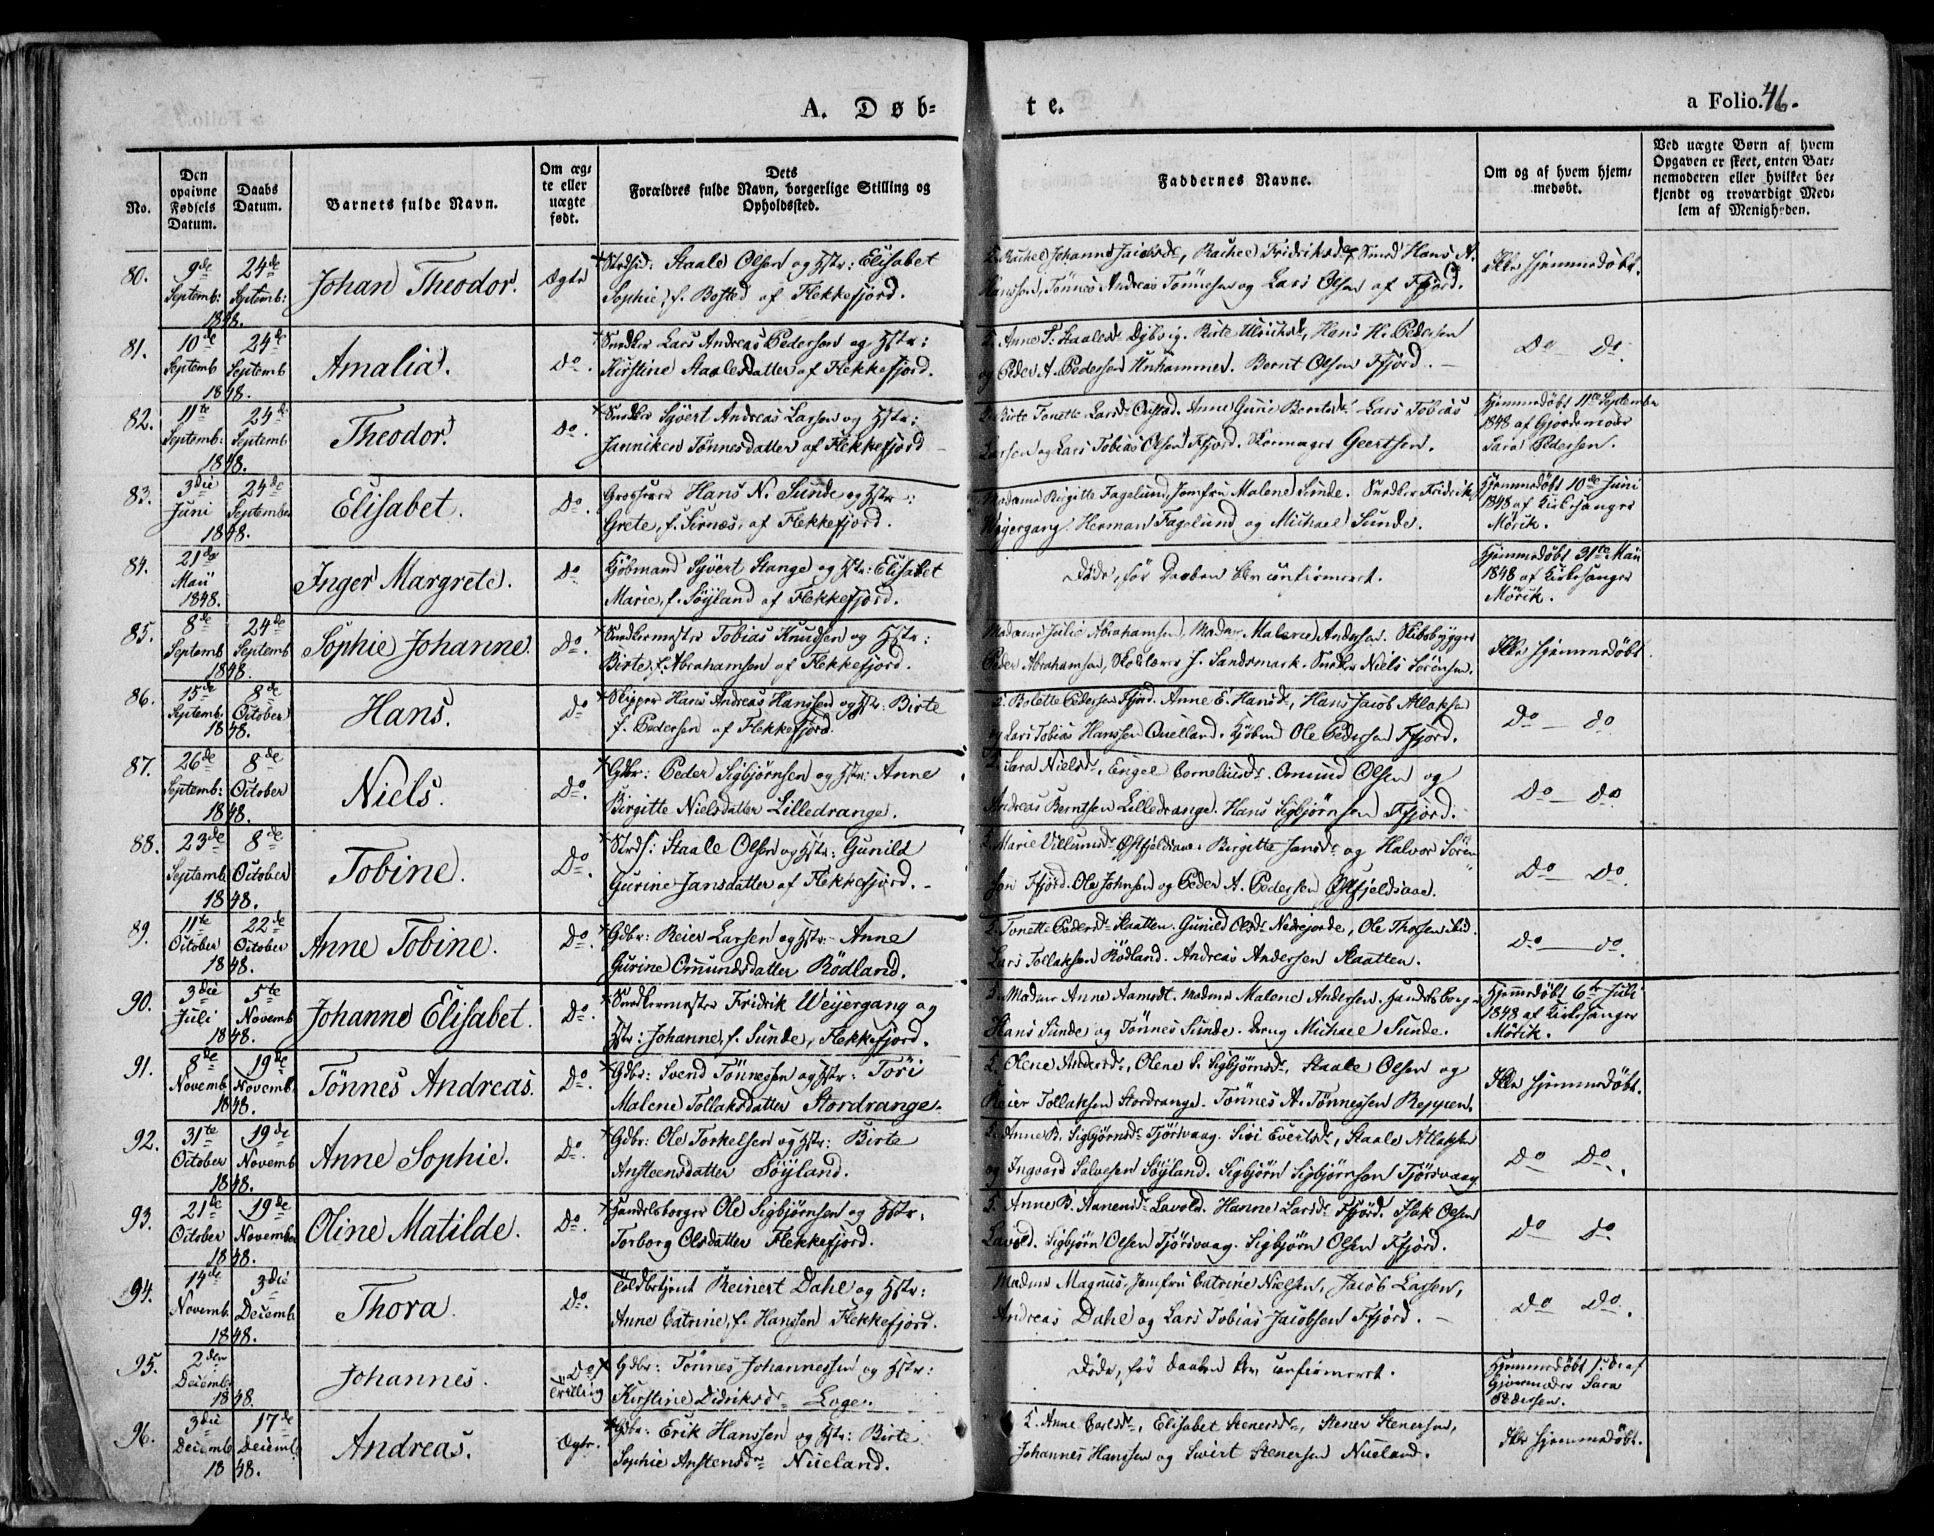 A. Døb- te. a Folio. 46.
No.
Den opgivne Fødsels Datum.
Daabs Datum.
Barnets fulde Navn.
Om ægte eller uægte født.
Dets Forældres fulde Navn, borgerlige Stilling og Opholdssted.
Faddernes Navne.
Om og af hvem hjemmedøbt.
Ved uægte Børn af hvem Opgaven er skeet, enten Barnemoderen eller hvilket bekjendt og troværdigt Medlem af Menigheden.
80. 9de Septemb: 1848. 24de Septemb: Johan Theodor. Ægte Staale Olsen og Hstr: Elisabet
Sophie, f. Bosted af Flekkefjord. Johanne Jacobsdr, Rachel Fridriksdr, Smed Hans A.
Hanssen, Tönnes Andreas Tönnesen og Lars Olsen af Ffjord. Ikke hjemmedøbt.
81. 10de Septemb 1848. 24de Septemb Amalia. Do. Snedker Lars Andreas Pedersen og Hstr:
Kirstine Staalesdatter af Flekkefjord. Anne S. Staalesdr Dybvig. Birte Ulrichsdr, Hans H. Pedersen
og Peder A. Pedersen Unhammer. Bernt Olsen Ffjord. Do Do.
82. 11te Septemb: 1848. 24de Septemb Theodor. Do. Snedker Syvert Andreas Larsen og Hstr:
Janniken Tönnesdatter af Flekkefjord Birte Tonette Larsdr. Anne Gurie Berntsdr. Lars Tobias
Larsen og Lars Tobias Olsen Ffjord. Skomager Geertsen. Hjemmedøbt 11te September
1848 af Gjordemoder
Sara Pedersen.
83. 3die Juni 1848. 24de September Elisabet. Do. Grosserer Hans N. Sunde og Hstr:
Grete, f. Sirnæs, af Flekkefjord. Madame Birgitte Fagelund, Jomfru Malene Sunde. Snedker Fridrik
Weyergang, Herman Fagelund og Michael Sunde. Hjemmedøbt 10de Juni
1848 af Kirkesanger
Mörik.
84. 21de Maii 1848. Inger Margrete. Do Kjöbmand Syvert Stange og Hstr: Elisabet
Marie, f. Söyland af Flekkefjord. Döde, før Daaben blev confirmeret. Hjemmedøbt 31te Maii
1848 af Kirkesanger
Mörik.
85. 8de Septemb 1848. 24de Septemb Sophie Johanne. Do. Snedkermester Tobias Knudsen og Hstr:
Birte, f. Abrahamsen af Flekkefjord. Madame Julie Abrahamsen, Madme Malene Andersen. Skibsbygger
Peder Abrahamsen, Skolelærer J. Sandsmark. Snedker Niels Sörensen. Ikke hjemmedøbt
86. 15de Septemb. 1848. 8de October Hans. Do Skipper Hans Andreas Hanssen og Hstr. Birte
f. Pedersen af Flekkefjord. Bolette Pedersen Ffjord. Anne E. Hansdr, Hans Jacob Atlaksen
og Lars Tobias Hanssen Quelland. Kjöbmd Ole Pedersen Ffjord. Do do.
87. 26de Septemb: 1848. 8de October Niels. Do. Gdbr: Peder Sigbjörnsen og Hstr: Anne
Birgitte Nielsdatter Lilledrange. Sara Nielsdr, Engel Corneliusdr. Omund Olsen og
Andreas Berntsen Lilledrange. Hans Sigbjörnsen Ffjord. Do Do
88. 23de Septemb 1848. 8de October Tobine. Do. Staale Olsen og Hstr: Gunild
Gurine Jansdatter af Flekkefjord. Marie Villumsdr Østfjeldsaae. Birgitte Jansdr og Halvor Sören
sen Ffjord. Ole Johnsen og Peder A. Pedersen Østfjeldsaae. Do Do.
89. 11te October 1848. 22de October Anne Tobine. Do. Gdbr: Reier Larsen og Hstr: Anne
Gurine Omundsdatter Rödland. Tonette Pedersdr Staatten. Gunild Olsdr Nedrejorde, Ole Thorsen ibid.
Lars Tollaksen Rödland. Andreas Andersen Staatten. Do do
90. 3die Juli 1848. 5te Novemb Johanne Elisabet. Do. Snedkermester Fridrik Weyergang og
Hstr: Johanne, f. Sunde, Flekkefjord. Madme Anne Aamodt. Madme Malene Andersen. Handelsborger
Hans Sunde og Tönnes Sunde. Michael Sunde. Hjemmedøbt 6te Juli
1848 af Kirkesanger
Mörik.
91. 8de Novemb 1848. 19de Novemb. Tönnes Andreas. Do. Gdbr: Svend Tönnessen og Hstr: Töri
Malene Tollaksdatter Stordrange. Olene Andersdr, Olene S. Sigbjörnsdr, Staale Olsen og
Reier Tollaksen Stordrange. Tönnes A. Tönnessen Reppen. Ikke hjemmedøbt.
92. 31te October 1848. 19de Novemb Anne Sophie. Do. Gdbr: Ole Torkelsen og Hstr: Birte
Anstensdatter Söyland. Anne B. Sigbjörnsdr Tjörsvaag. Siri Evertsdr, Staale Atlaksen
og Ingvard Salvesen Söyland. Sigbjörn Sigbjörnsen Tjörsvaag. Do Do.
93. 21de October 1848. 19de November Oline Matilde. Do. Handelsborger Ole Sigbjörnsen og Hstr:
Torborg Olsdatter Flekkefjord. Anne B. Aanensdr Lavold. Hanne Larsdr Ffjord. Isak Olsen
Lavold. Sigbjörn Olsen Tjörsvaag. Sigbjörn Olsen Ffjord. Do do.
94. 14de Novemb. 1848. 3die Decemb Thora. Do. Toldbetjent Reinert Dahl og Hstr:
Anne Catrine, f. Hanssen Flekkefjord. Madme Magnus, Jomfru Catrine Nielsen, Jacob Larsen,
Andreas Dahl og Lars Tobias Jacobsen Ffjord. Do Do.
95. 2den Decemb 1848. Johannes. Do Tvilling Gdbr: Tönnes Johannessen og Hstr:
Kirstine Didriksdr Loge. Döde, før Daaben blev confirmeret. Hjemmedøbt af
Gjormoder Sara
Pedersen.
96. 3die Decemb 1848. 17de Decemb. Andreas. Ægte. Gdbr: Erik Hanssen og Hstr: Birte
Sophie Anstensdr Nueland. Anne Carlsdr, Elisabet Stenersdr, Stener Stenersen,
Johannes Hanssen og Sivert Stenersen Nueland. Ikke hjemmedøbt.